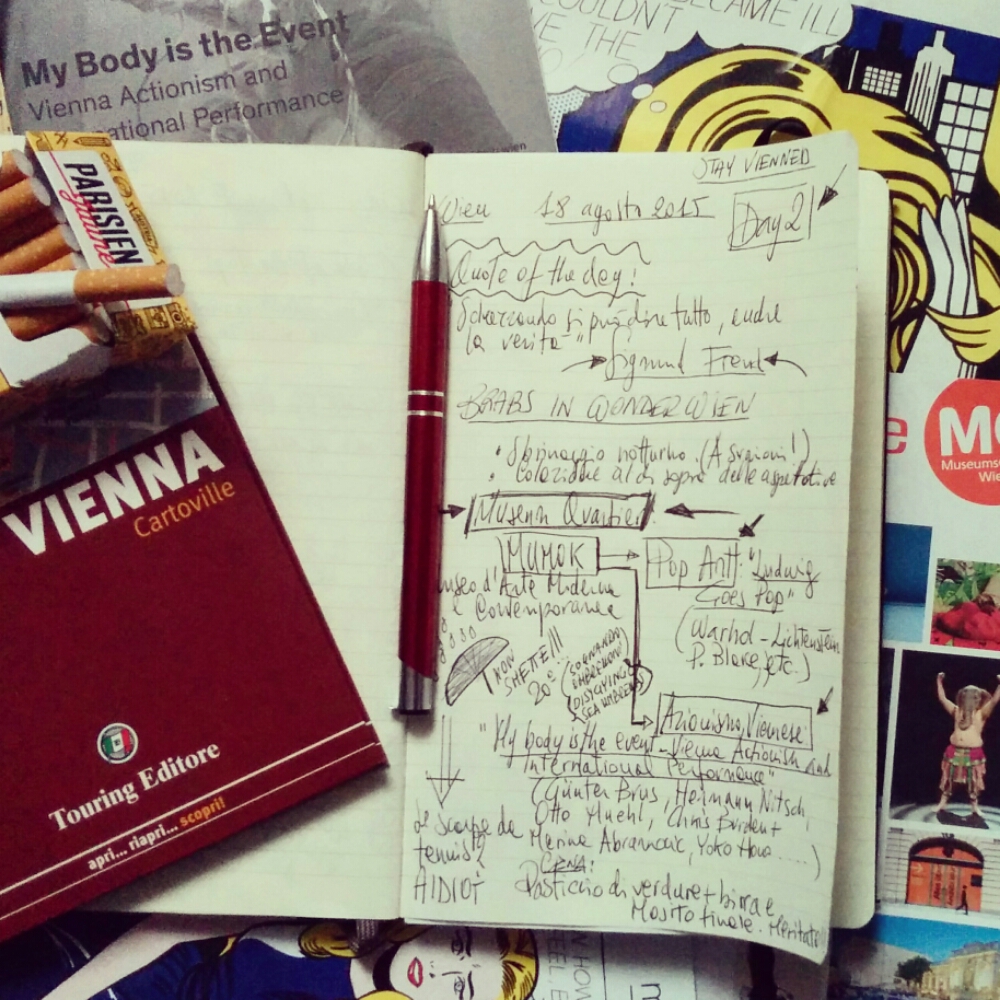 My Body is the Event
Vienna Actionism and
national Performance
COULDN'T
VE THE
BECAME ILL
PARISIEN
jaune
VIENNA
Cartoville
Touring Editore
apri... riapri... scopri!
STAY VIENNED
Wien 18 agosto 2015
Day 2
Quote of the day!
Scherzando si può dire tutto, anche
la verità"
Sigmund Freud
BRABS IN WONDERWIEN
• notturno. (A !)
• Colazione al di sopra delle aspettative
Museum Quartier
MUMOK
Pop Art: "Ludwig
Goes Pop"
useo d'Arte Moderna
e Contemporanea
(Warhol - Lichtenstein
P. Blake, etc.)
NON
SMETTE!!!
20°
Azionismo Viennese
"My body is the event - Vienna Actionism and
International Performance"
(Günter Brus, Hermann Nitsch,
Otto Muehl, Chris Burden +
Marina Abramovic, Yoko Hono ....)
scarpe da
tennis?
AIDIOT
CENA:
Pasticcio di verdure + birra e
Mojito finale. Meritato
e
M
Museums
Wie